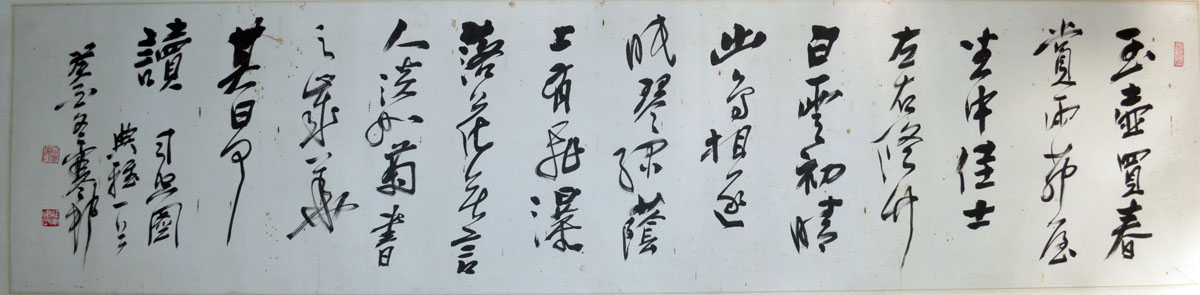 玉壺買春
賞雨茆屋
坐中佳士
左右修竹
白雲初晴
幽鳥相逐
眠琴綠蔭
上有飛瀑
落花無言
人淡如菊書
之歲華
其曰可
讀 司空圖
典雅一
冬